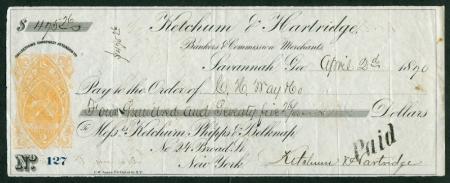 $ 475 26/
Ketchum & Hartridge.
Bankers & Commission Merchants
Savannah, Geo April 2d 1870
$475 26
Pay to the Order of C. H. Way & Co
Four Hundred and Seventy five 26/ Dollars
To Messrs Ketchum, Phipps & Belknap
No 24 Broad St
New York
Ketchum & Hartridge
Paid
No. 127